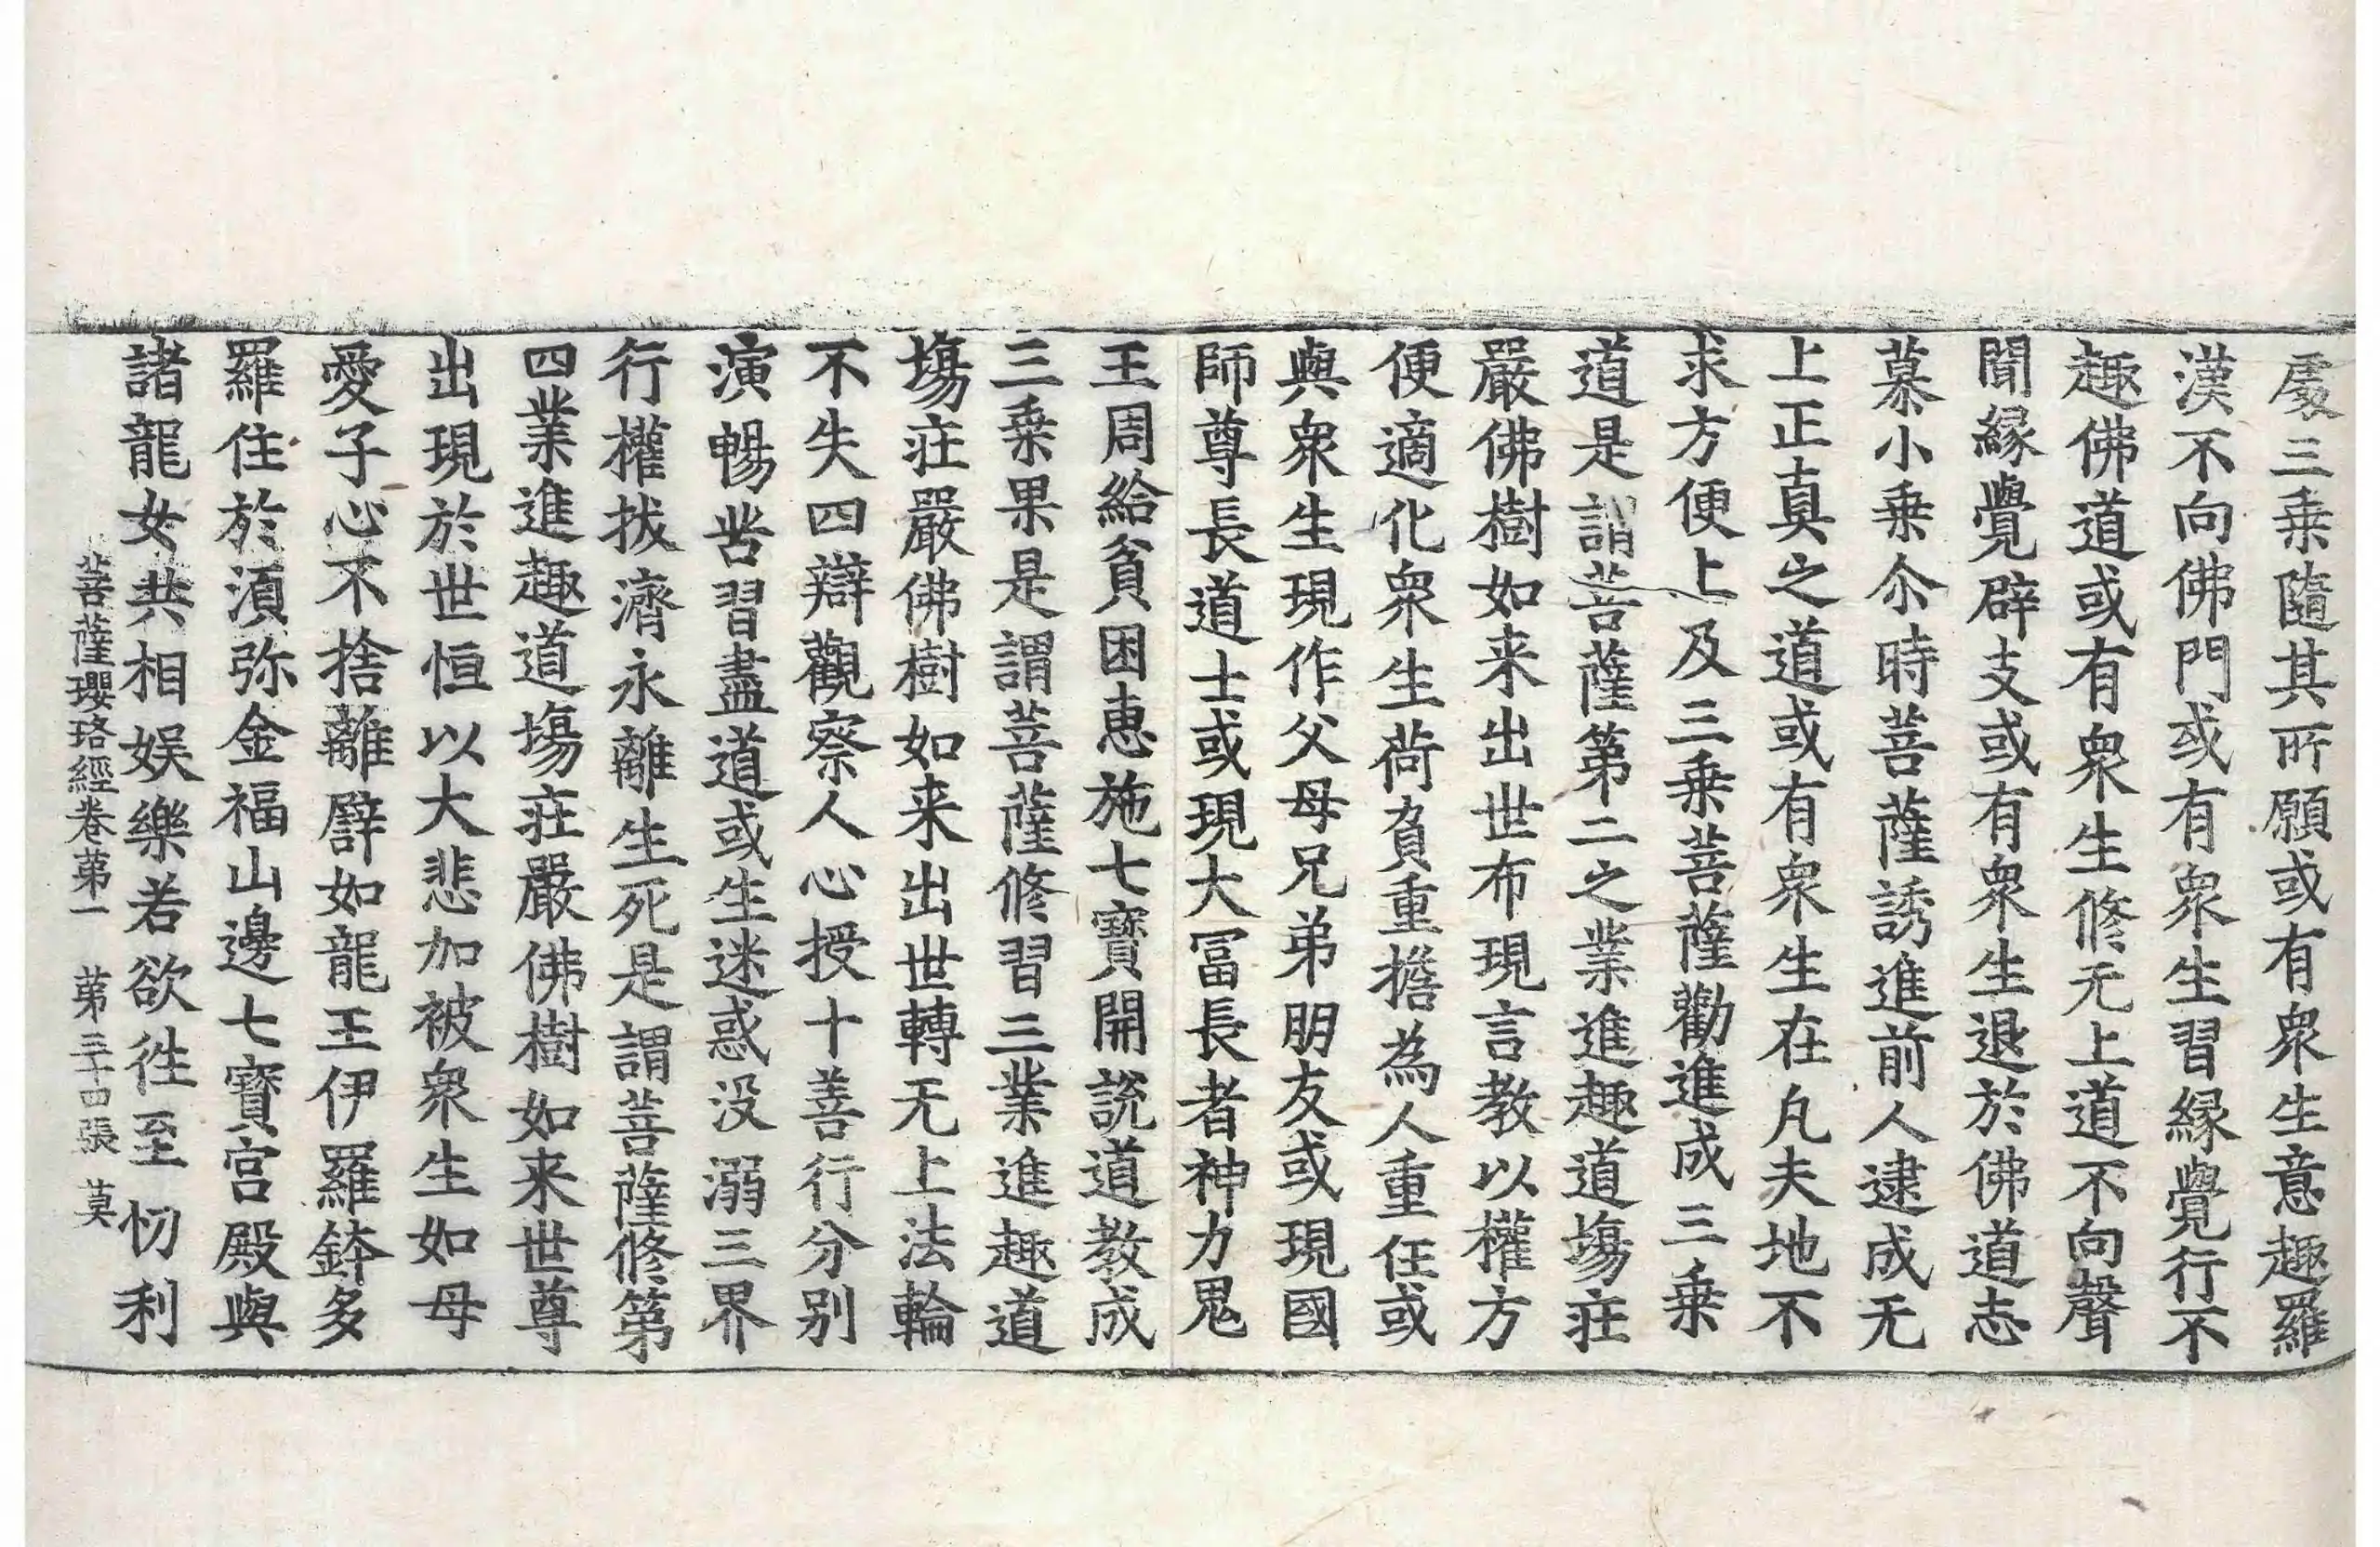 處三乗隨其所願或有衆生意趣羅
漢不向佛門或有衆生習縁覺行不
趣佛道或有衆生修无上道不向聲
聞縁覺辟支或有衆生退於佛道志
慕小乗尒時菩薩誘進前人逮成无
上正真之道或有衆生在凡夫地不
求方便上及三乗菩薩勸進成三乗
道是謂菩薩第二之業進趣道場莊
嚴佛樹如来出世布現言教以權方
便適化衆生荷負重擔為人重任或
與衆生現作父母兄弟朋友或現國
師尊長道士或現大冨長者神力鬼
王周給貧困惠施七寳開説道教成
三乗果是謂菩薩修習三業進趣道
場莊嚴佛樹如来出世轉无上法輪
不失四辯觀察人心授十善行分別
演暢苦習盡道或生迷惑没溺三界
行權拔濟永離生死是謂菩薩修第
四業進趣道場莊嚴佛樹如来世尊
出現於世恒以大悲加被衆生如母
愛子心不捨離譬如龍王伊羅鉢多
羅住於湏弥金福山邊七寳宮殿與
諸龍女共相娱樂若欲徃至忉利
菩薩瓔珞經卷第一　第三十四張　莫